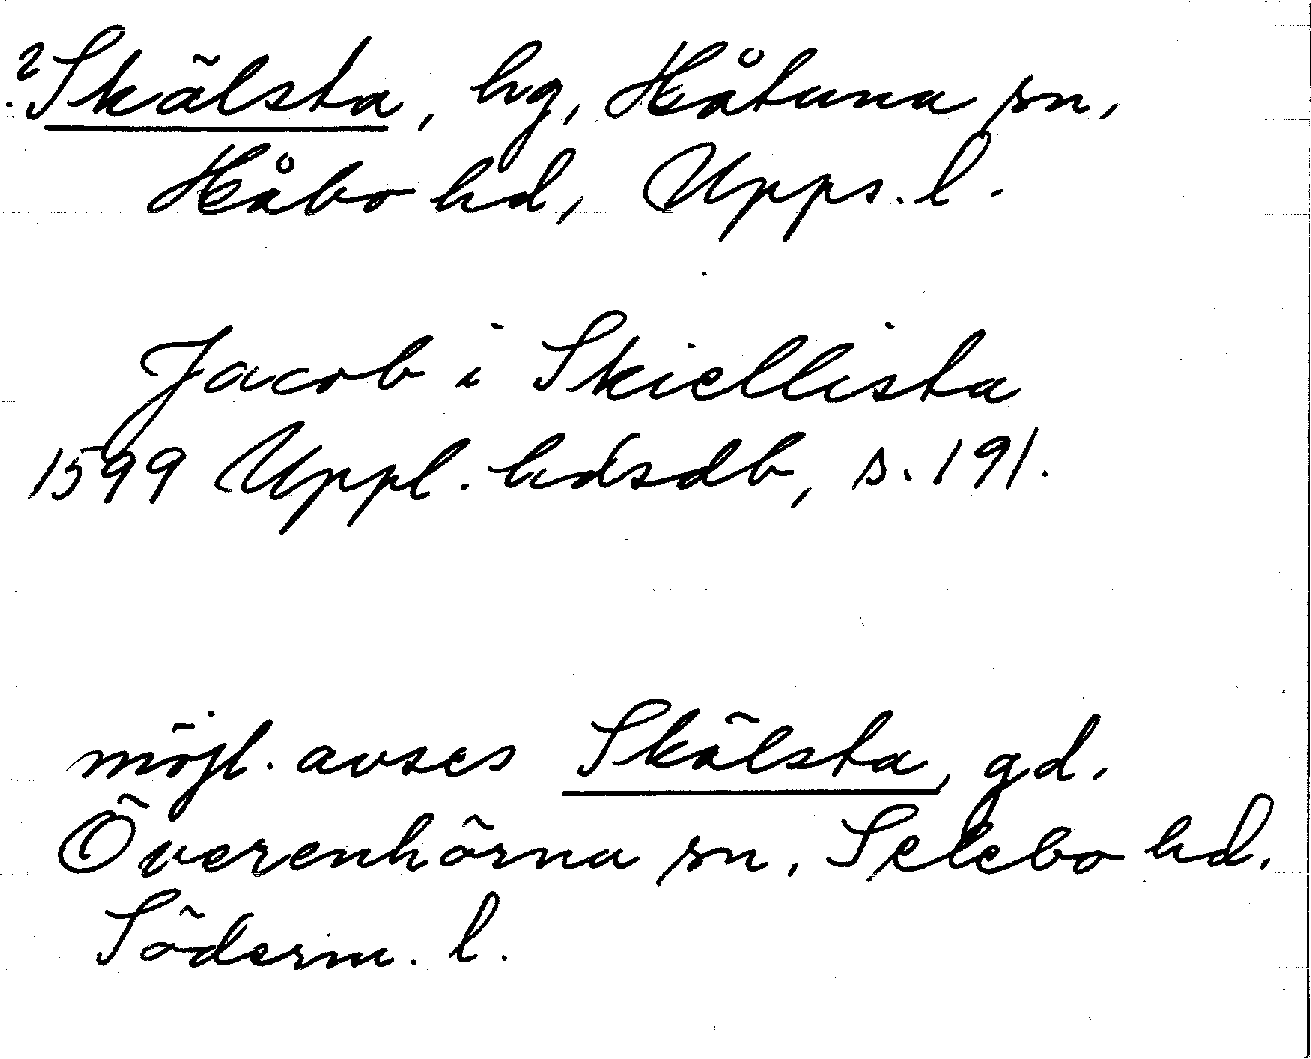 ? Skälsta, hg, Håtuna sn,
Håbo hd, Upps. l.
Jacob i Skiellista
1599 Uppl. hdsdb, s. 191.
möjl. avses Skälsta, gd.
Överenhörna sn, Selebo hd.
Söderm. l.